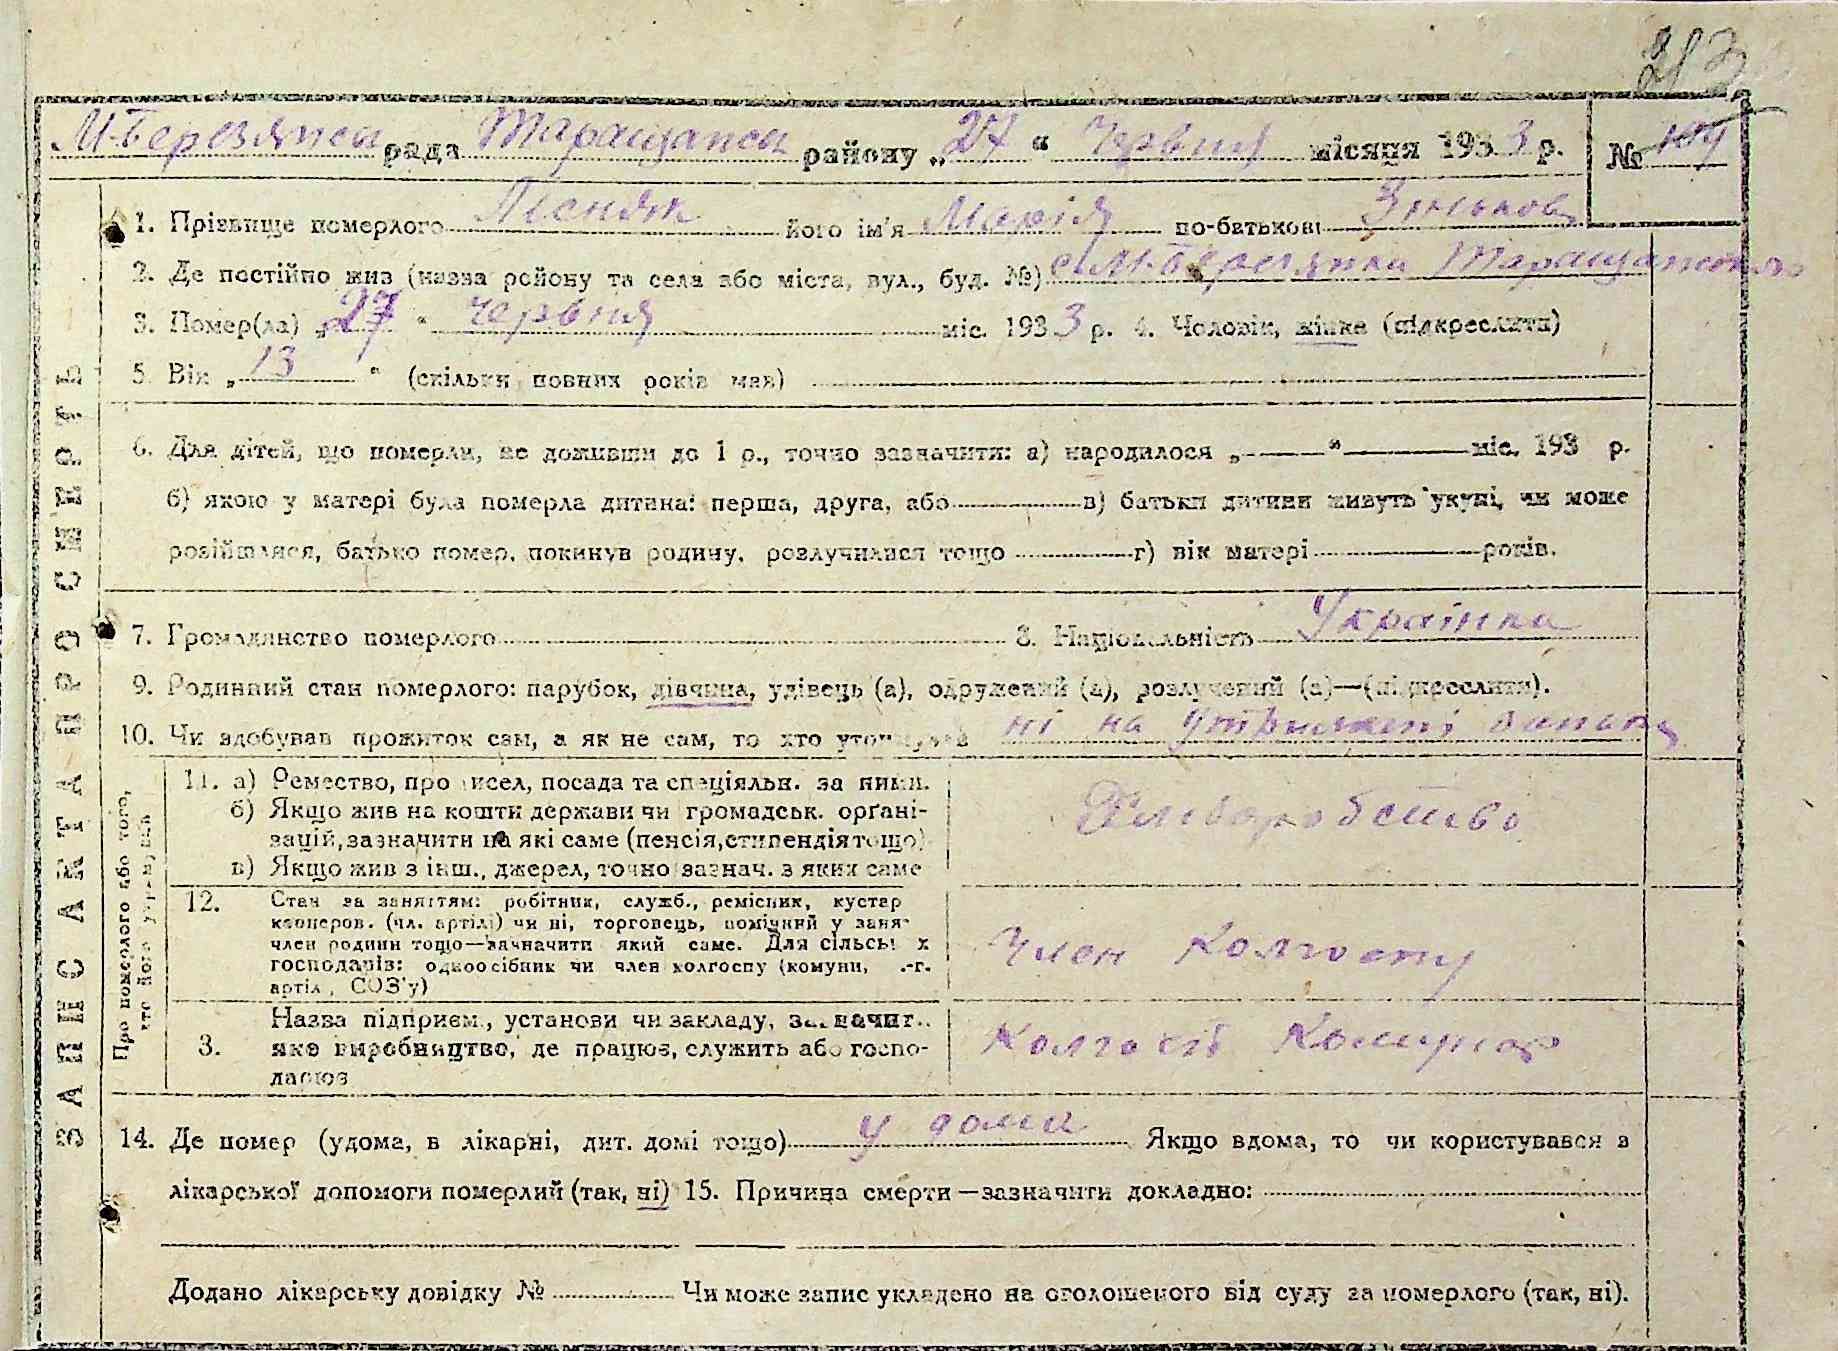 213
М-Березянська рада Таращанськ району „27" Червня місяця 1933 р. №
1. Прізвище померлого Пісняк його ім'я Марія по-батькові Зіньков
2. Де постійно жив (назва району та села або міста, вул., буд. №) с. М-Березянка Таращанського
3. Помер(ла) „27" червня міс. 1933 р. 4. Чоловік, жінка (підкреслити)
5. Вік „13" (скільки повних років мав)
6. Для дітей, що померли, не доживши до 1 р., точно зазначити: а) народилося „—"— міс. 193 р.
б) якою у матері була померла дитина: перша, друга, або — в) батьки дитини живуть укупі, чи може
розійшлися, батько помер, покинув родину, розлучилися тощо — г) вік матері — років.
7. Громадянство померлого 8. Національність Українка
9. Родинний стан померлого: парубок, дівчина, удівець (а), одружений (а), розлучений (а)—(підкреслити).
10. Чи здобував прожиток сам, а як не сам, то хто утримував ні на утриманні
11. а) Ремество, промисел, посада та спеціяльн. за якими.
б) Якщо жив на кошти держави чи громадськ. орґані-
зацій, зазначити на які саме (пенсія, стипендія тощо)
в) Якщо жив з інш., джерел, точно зазнач. з яких саме
Хліборобство
12. Стан за заняттям: робітник, служб., ремісник, кустар
кооперов. (чл. артілі) чи ні, торговець, помічний у заня-
член родини тощо—зазначити який саме. Для сільськ х
господарів: одноосібник чи член колгоспу (комуни, .-г.
артіл , СОЗ'у)
Член колгоспу
3. Назва підприєм., установи чи закладу, зазначит..
яке виробництво, де працює, служить або госпо-
дарює
Колгосп Комунар
14. Де помер (удома, в лікарні, дит. домі тощо) у дома Якщо вдома, то чи користувався з
лікарської допомоги померлий (так, ні) 15. Причина смерти—зазначити докладно:
Додано лікарську довідку № Чи може запис укладено на оголошеного від суду за померлого (так, ні).
ЗАПИС АКТА ПРО СМЕРТЬ
Про померлого або того,
хто його утримував